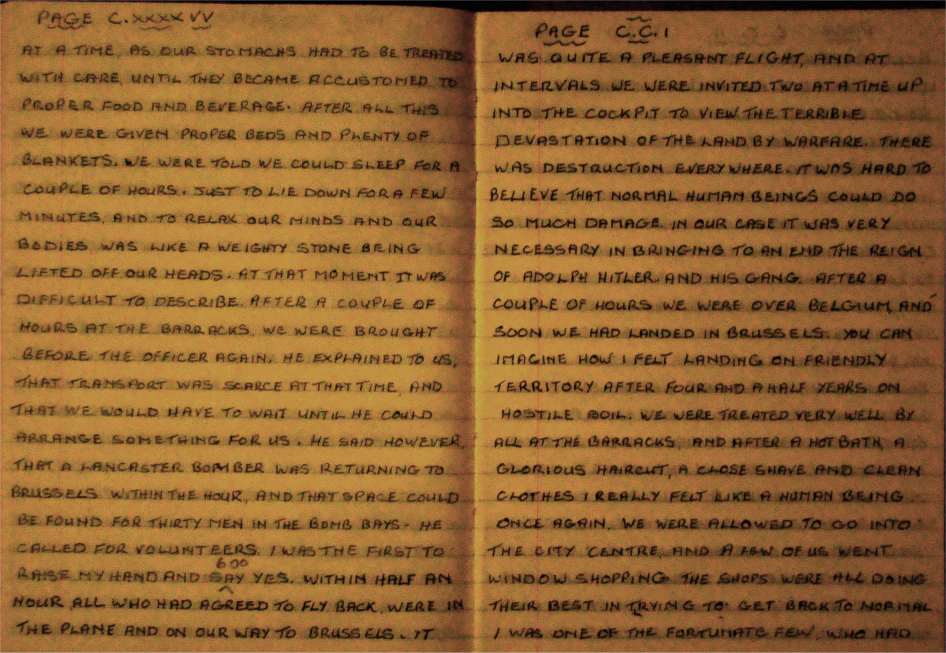 PAGE C.XXXXVV
AT A TIME, AS OUR STOMACHS HAD TO BE TREATED
WITH CARE, UNTIL THEY BECAME ACCUSTOMED TO
PROPER FOOD AND BEVERAGE. AFTER ALL THIS
WE WERE GIVEN PROPER BEDS AND PLENTY OF
BLANKETS. WE WERE TOLD WE COULD SLEEP FOR A
COUPLE OF HOURS. JUST TO LIE DOWN FOR A FEW
MINUTES, AND TO RELAX OUR MINDS AND OUR
BODIES WAS LIKE A WEIGHTY STONE BEING
LIFTED OFF OUR HEADS. AT THAT MOMENT IT WAS
DIFFICULT TO DESCRIBE. AFTER A COUPLE OF
HOURS AT THE BARRACKS, WE WERE BROUGHT
BEFORE THE OFFICER AGAIN. HE EXPLAINED TO US,
THAT TRANSPORT WAS SCARCE AT THAT TIME, AND
THAT WE WOULD HAVE TO WAIT UNTIL HE COULD
ARRANGE SOMETHING FOR US. HE SAID HOWEVER,
THAT A LANCASTER BOMBER WAS RETURNING TO
BRUSSELS WITHIN THE HOUR, AND THAT SPACE COULD
BE FOUND FOR THIRTY MEN IN THE BOMB BAYS. HE
CALLED FOR VOLUNTEERS. I WAS THE FIRST TO
RAISE MY HAND AND SAY YES. WITHIN HALF AN
600
HOUR ALL WHO HAD AGREED TO FLY BACK, WERE IN
THE PLANE AND ON OUR WAY TO BRUSSELS. IT
PAGE C.C.1
WAS QUITE A PLEASANT FLIGHT, AND AT
INTERVALS WE WERE INVITED TWO AT A TIME UP
INTO THE COCKPIT TO VIEW THE TERRIBLE
DEVASTATION OF THE LAND BY WARFARE. THERE
WAS DESTRUCTION EVERYWHERE. IT WAS HARD TO
BELIEVE THAT NORMAL HUMAN BEINGS COULD DO
SO MUCH DAMAGE. IN OUR CASE IT WAS VERY
NECESSARY IN BRINGING TO AN END THE REIGN
OF ADOLPH HITLER. AND HIS GANG. AFTER A
COUPLE OF HOURS WE WERE OVER BELGIUM, AND
SOON WE HAD LANDED IN BRUSSELS. YOU CAN
IMAGINE HOW I FELT LANDING ON FRIENDLY
TERRITORY AFTER FOUR AND A HALF YEARS ON
HOSTILE SOIL. WE WERE TREATED VERY WELL BY
ALL AT THE BARRACKS, AND AFTER A HOT BATH, A
GLORIOUS HAIRCUT, A CLOSE SHAVE AND CLEAN
CLOTHES I REALLY FELT LIKE A HUMAN BEING
ONCE AGAIN. WE WERE ALLOWED TO GO INTO
THE CITY CENTRE, AND A FEW OF US WENT
WINDOW SHOPPING. THE SHOPS WERE ALL DOING
THEIR BEST IN TRYING TO GET BACK TO NORMAL
I WAS ONE OF THE FORTUNATE FEW, WHO HAD